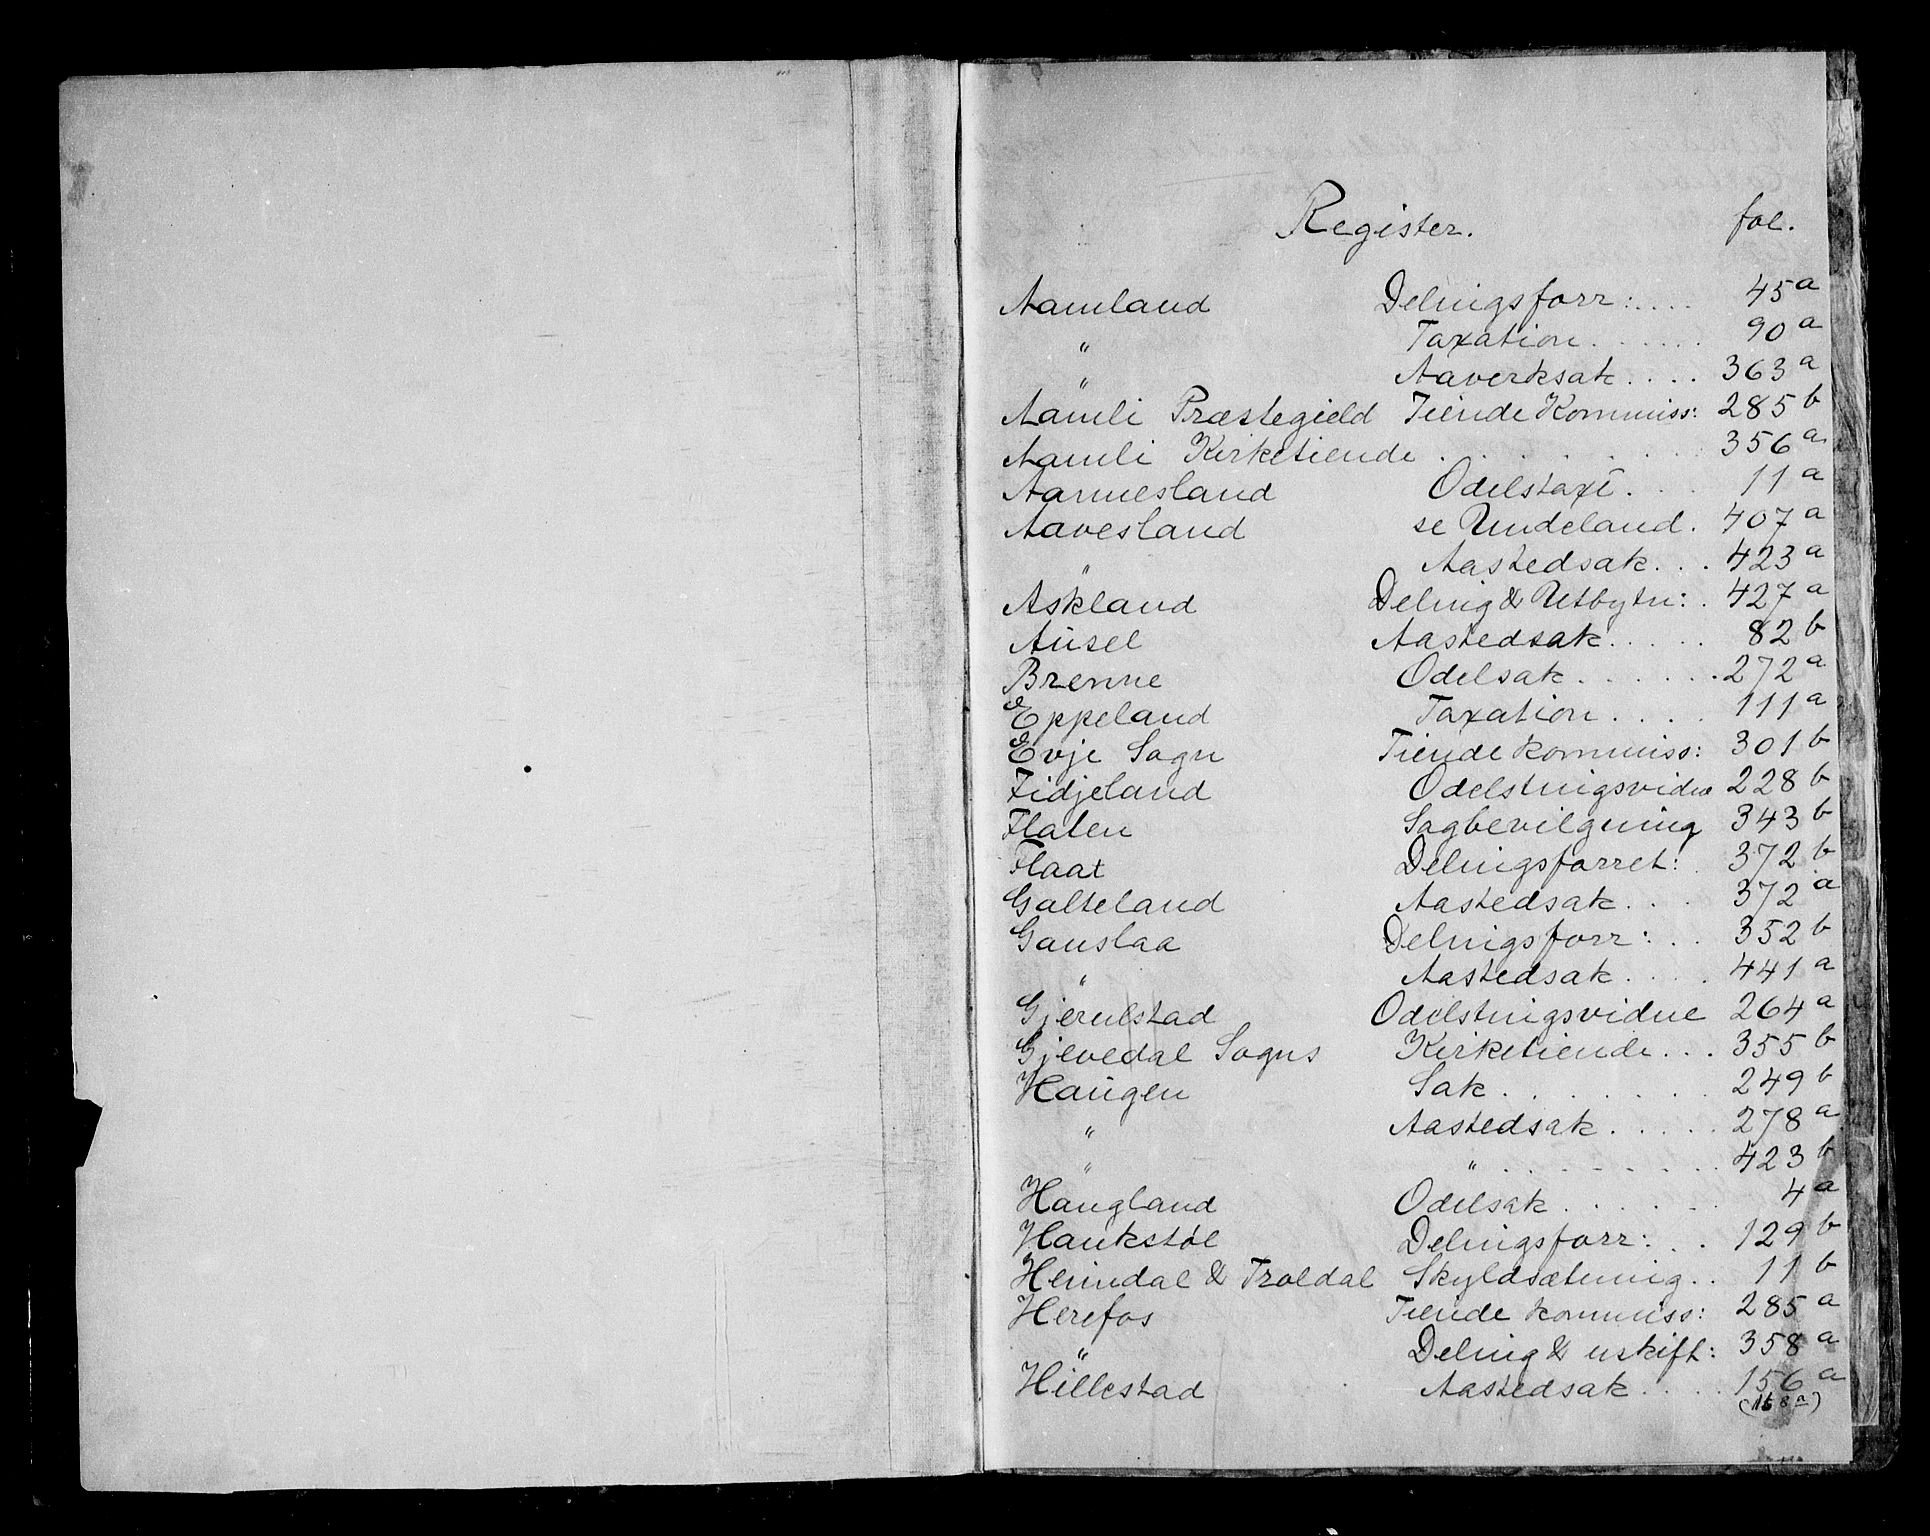 Register. fol.
Aamland Delnigsforr: .... 45 a
" Taxation ...... 90 a
" Aaverksak .... 363 a
Aamli Præstegield Tiende Kommiss: 285 b
Aamli Kirketiende ....... 356 a
Aarmesland Odelstaxt . . . 11 a
Aavesland se Undeland. 407 a
" Aastedsak ... 423 a
Askland Delnig & Utbytn: . 427 a
Ausel Aastedsak ..... 82 b
Brenne Odelsak ....... 272 a
Eppeland Taxation .... 111 a
Evje Sogn Tiende kommiss: 301 b
Fidjeland Odelstnigsvidne 228 b
Flaten Sagbevilgning 343 b
Flaat Delnigsforret: 372 b
Galteland Aastedsak ... 372 a
Gauslaa Delnigsforr: .. 352 b
" Aastedsak .... 441 a
Gjerulstad Odelstnigsvidne 264 a
Gjevedal Sogns Kirketiende ... 355 b
Haugen Sak ........ 249 b
" Aastedsak ..... 278 a
" " ........ 423 b
Haugland Odelsak ...... 4 a
Haukstøl Delnigsforr: .. 129 b
Heimdal & Troldal Skyldsætning .. 11 b
Herefos Tiende kommiss: 285 a
" Delnig & uskift: 358 a
Hillestad Aastedsak .... 156 a
(168 a)